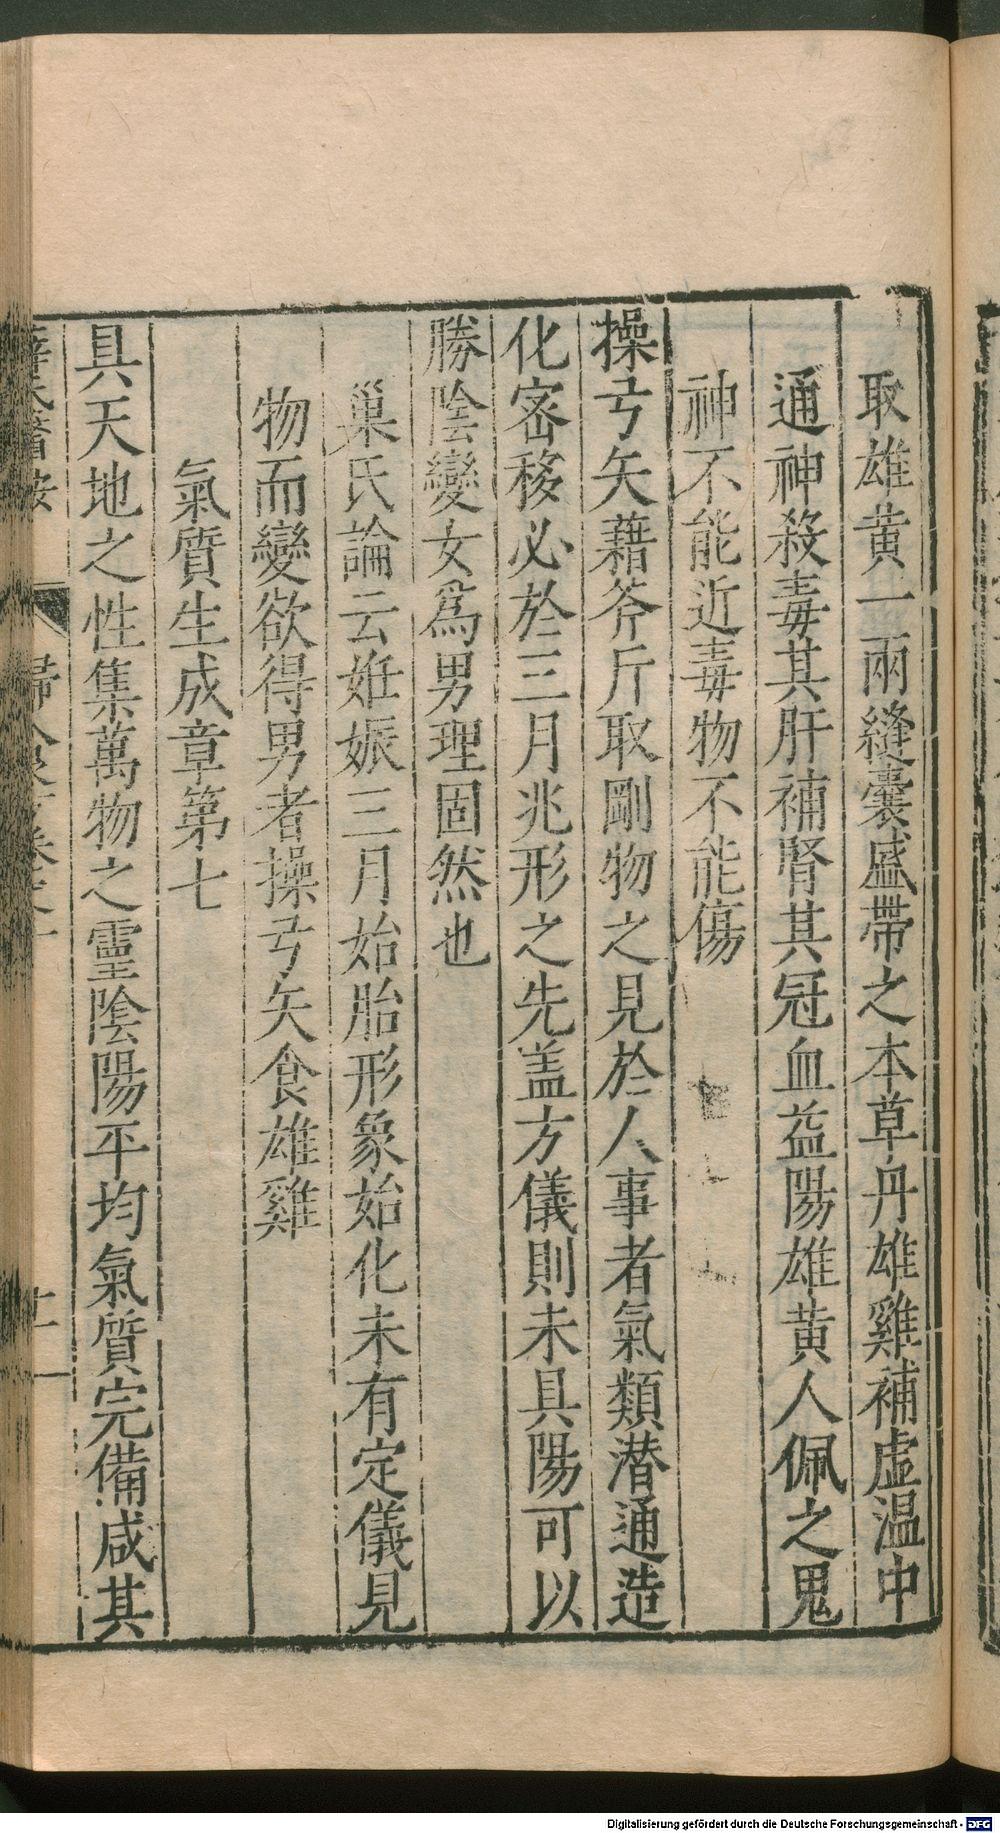 取雄黄一兩縫囊盛帶之本草丹雄雞補虛温中
通神殺毒其肝補腎其冠血益陽雄黄人佩之鬼
神不能近毒物不能傷
操弓矢藉斧斤取剛物之見於人事者氣類潜通造
化密移必於三月兆形之先盖方儀則未具陽可以
勝陰變女爲男理固然也
巢氏論云姙娠三月始胎形象始化未有定儀見
物而變欲得男者操弓矢食雄雞
氣質生成章第七
具天地之性集萬物之靈陰陽平均氣質完備咸其
Digitalisierung gefördert durch die Deutsche Forschungsgemeinschaft - DFG